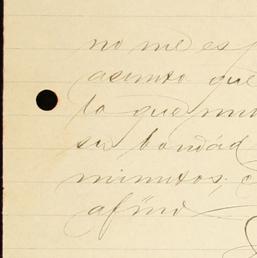 no me es
asunto que
lo que
su bondad
minutos,
afmo